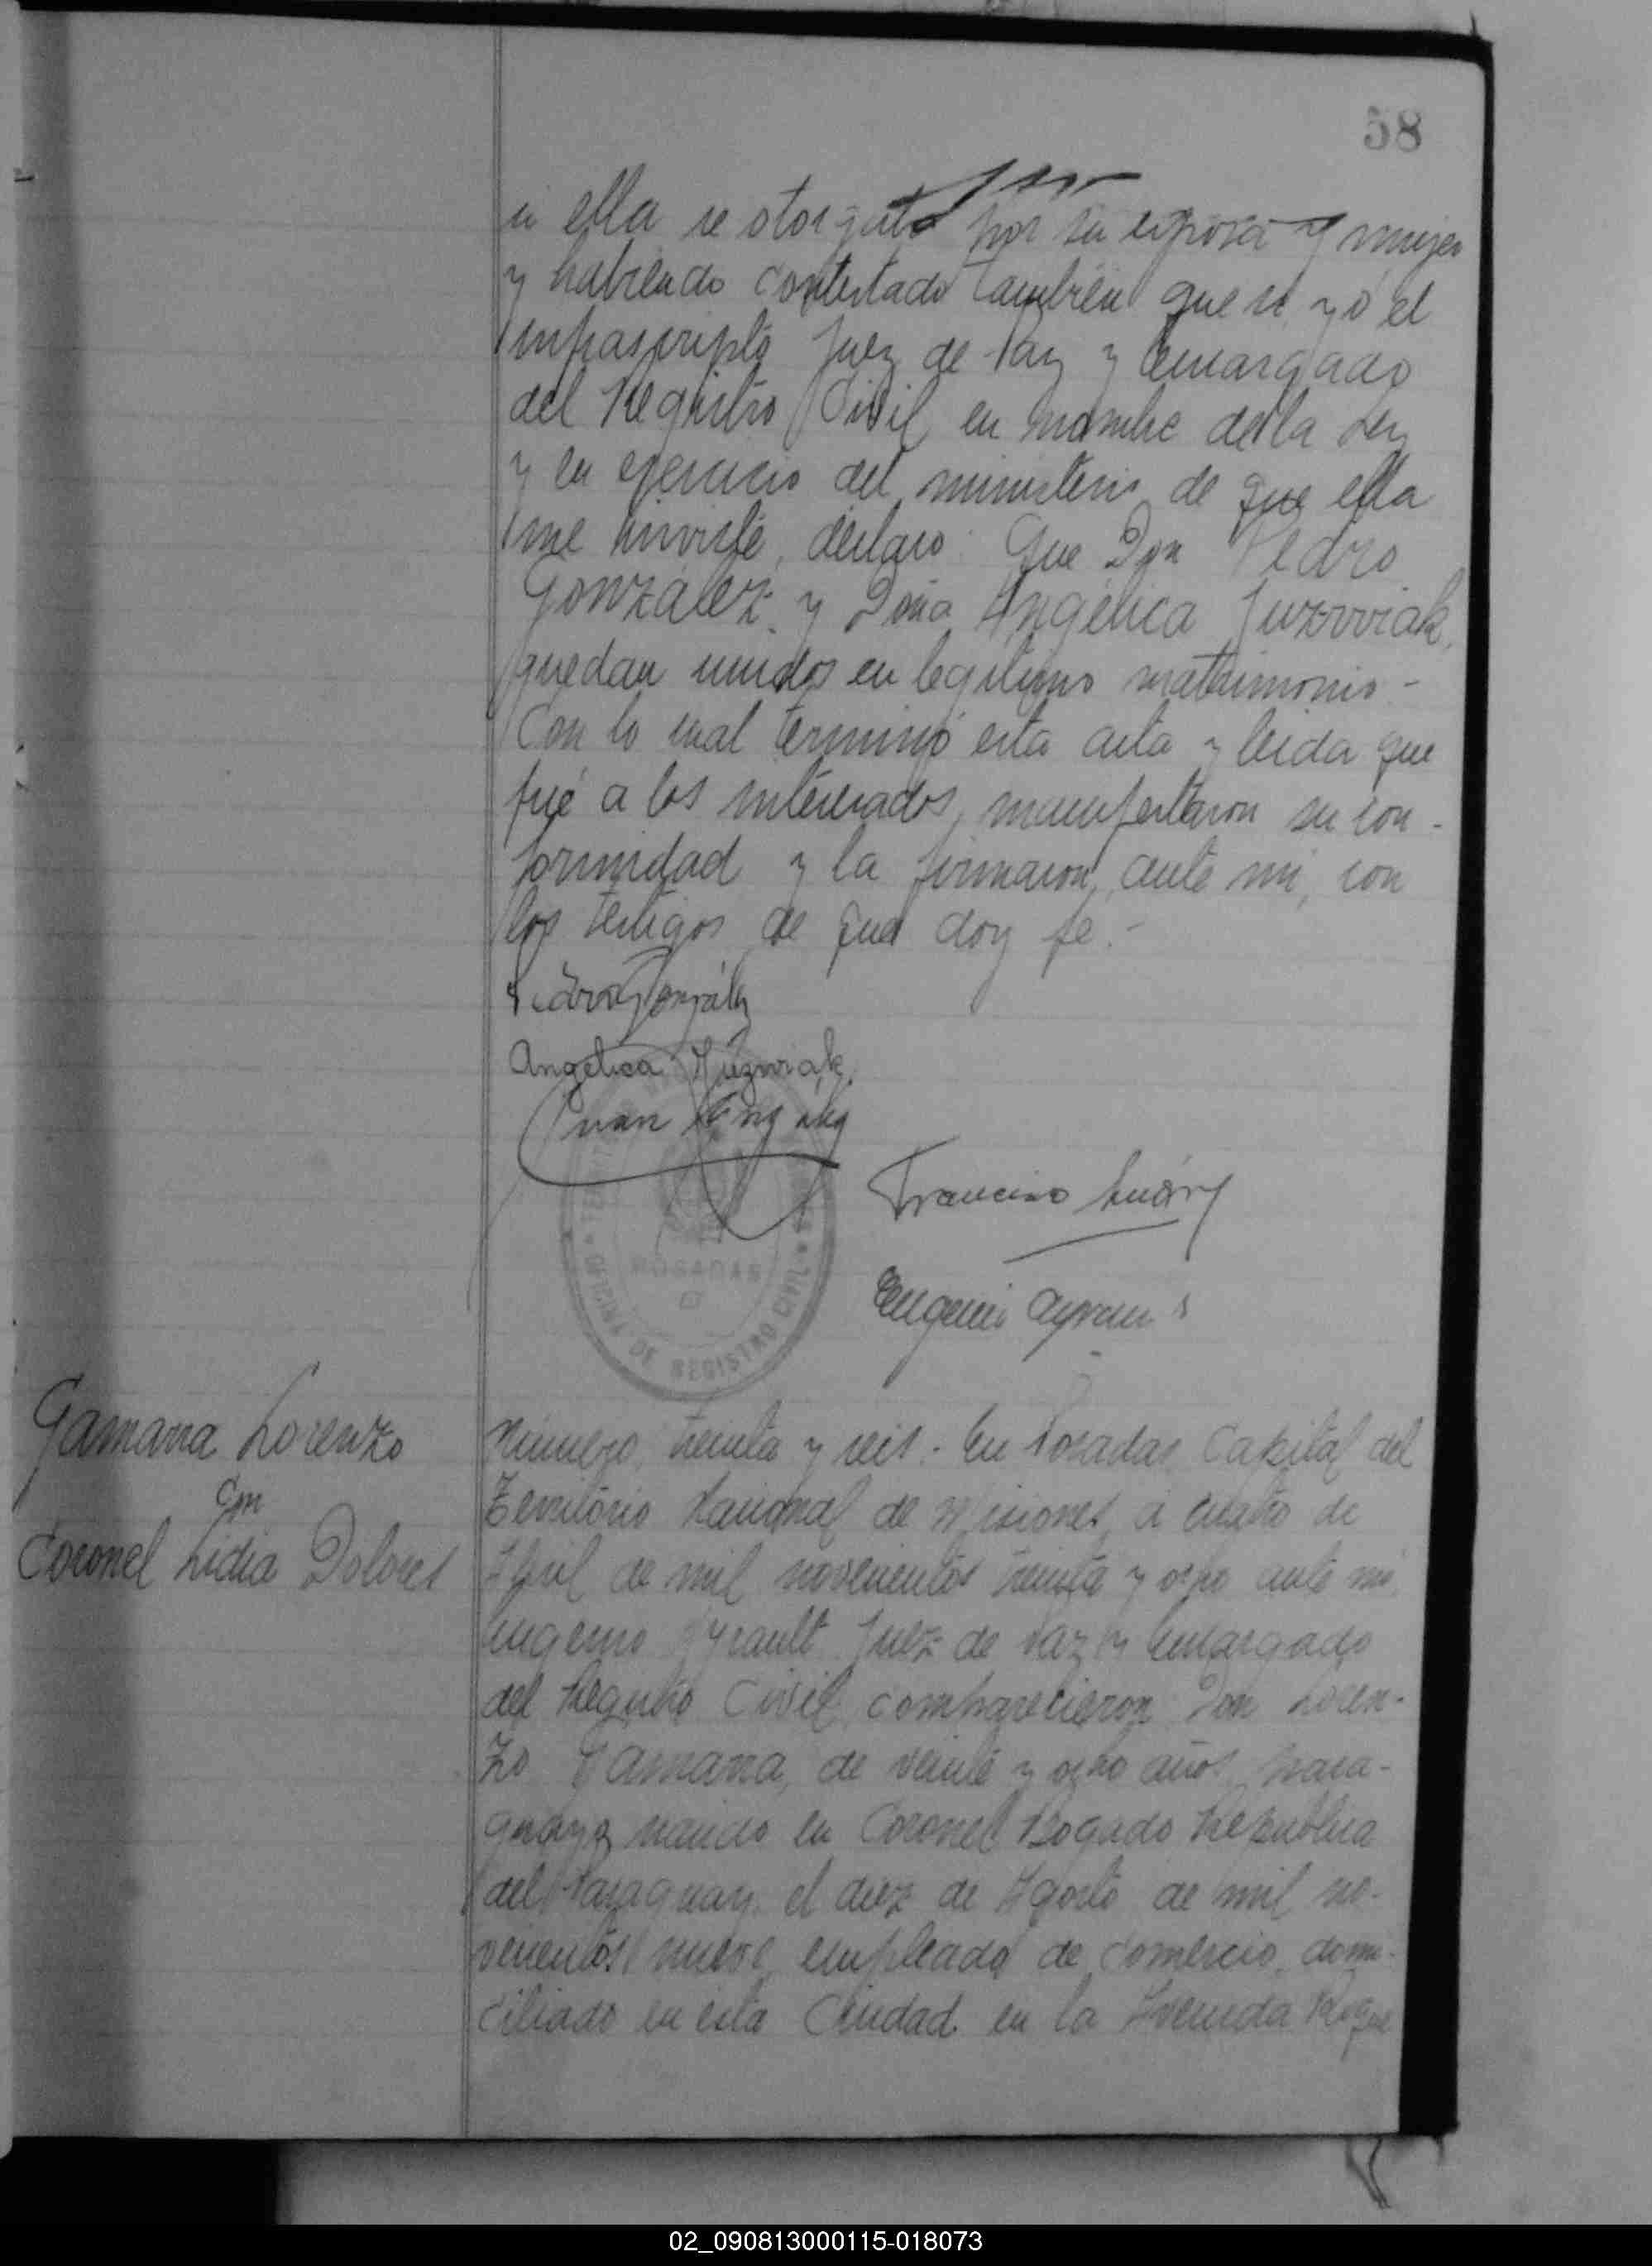 58
a ella se otorgaba por su esposa y mujer
y habiendo contestado también que si yo el
infrascripto Juez de Paz y Encargado
del Registro Civil en nombre de la Ley
y en ejercicio del ministerio de que ella
me inviste, declaro: Que Don Pedro
González y Doña Angélica Juzwiak,
quedan unidos en legítimo matrimonio.-
Con lo cual terminó esta acta y leida que
fué a los interesados, manifestaron su con-
formidad y la firmaron, ante mi, con
los testigos de que doy fe.-
Pedro González
Angélica
Juan
Francisco
Eugenio
OFICINA DE REGISTRO CIVIL
POSADAS
Gamarra Lorenzo
con
Coronel Lidia Dolores
Número treinta y seis.- En Posadas Capital del
Territorio Nacional de Misiones, a cuatro de
Abril de mil novecientos treinta y ocho ante mi
Eugenio Ayrault Juez de Paz y Encargado
del Registro Civil comparecieron Don Loren-
zo Gamarra, de veinte y ocho años, para-
guayo nacido en Coronel Bogado República
del Paraguay, el diez de Agosto de mil no-
vecientos nueve empleado de comercio, domi-
ciliado en esta Ciudad en la Avenida Roque